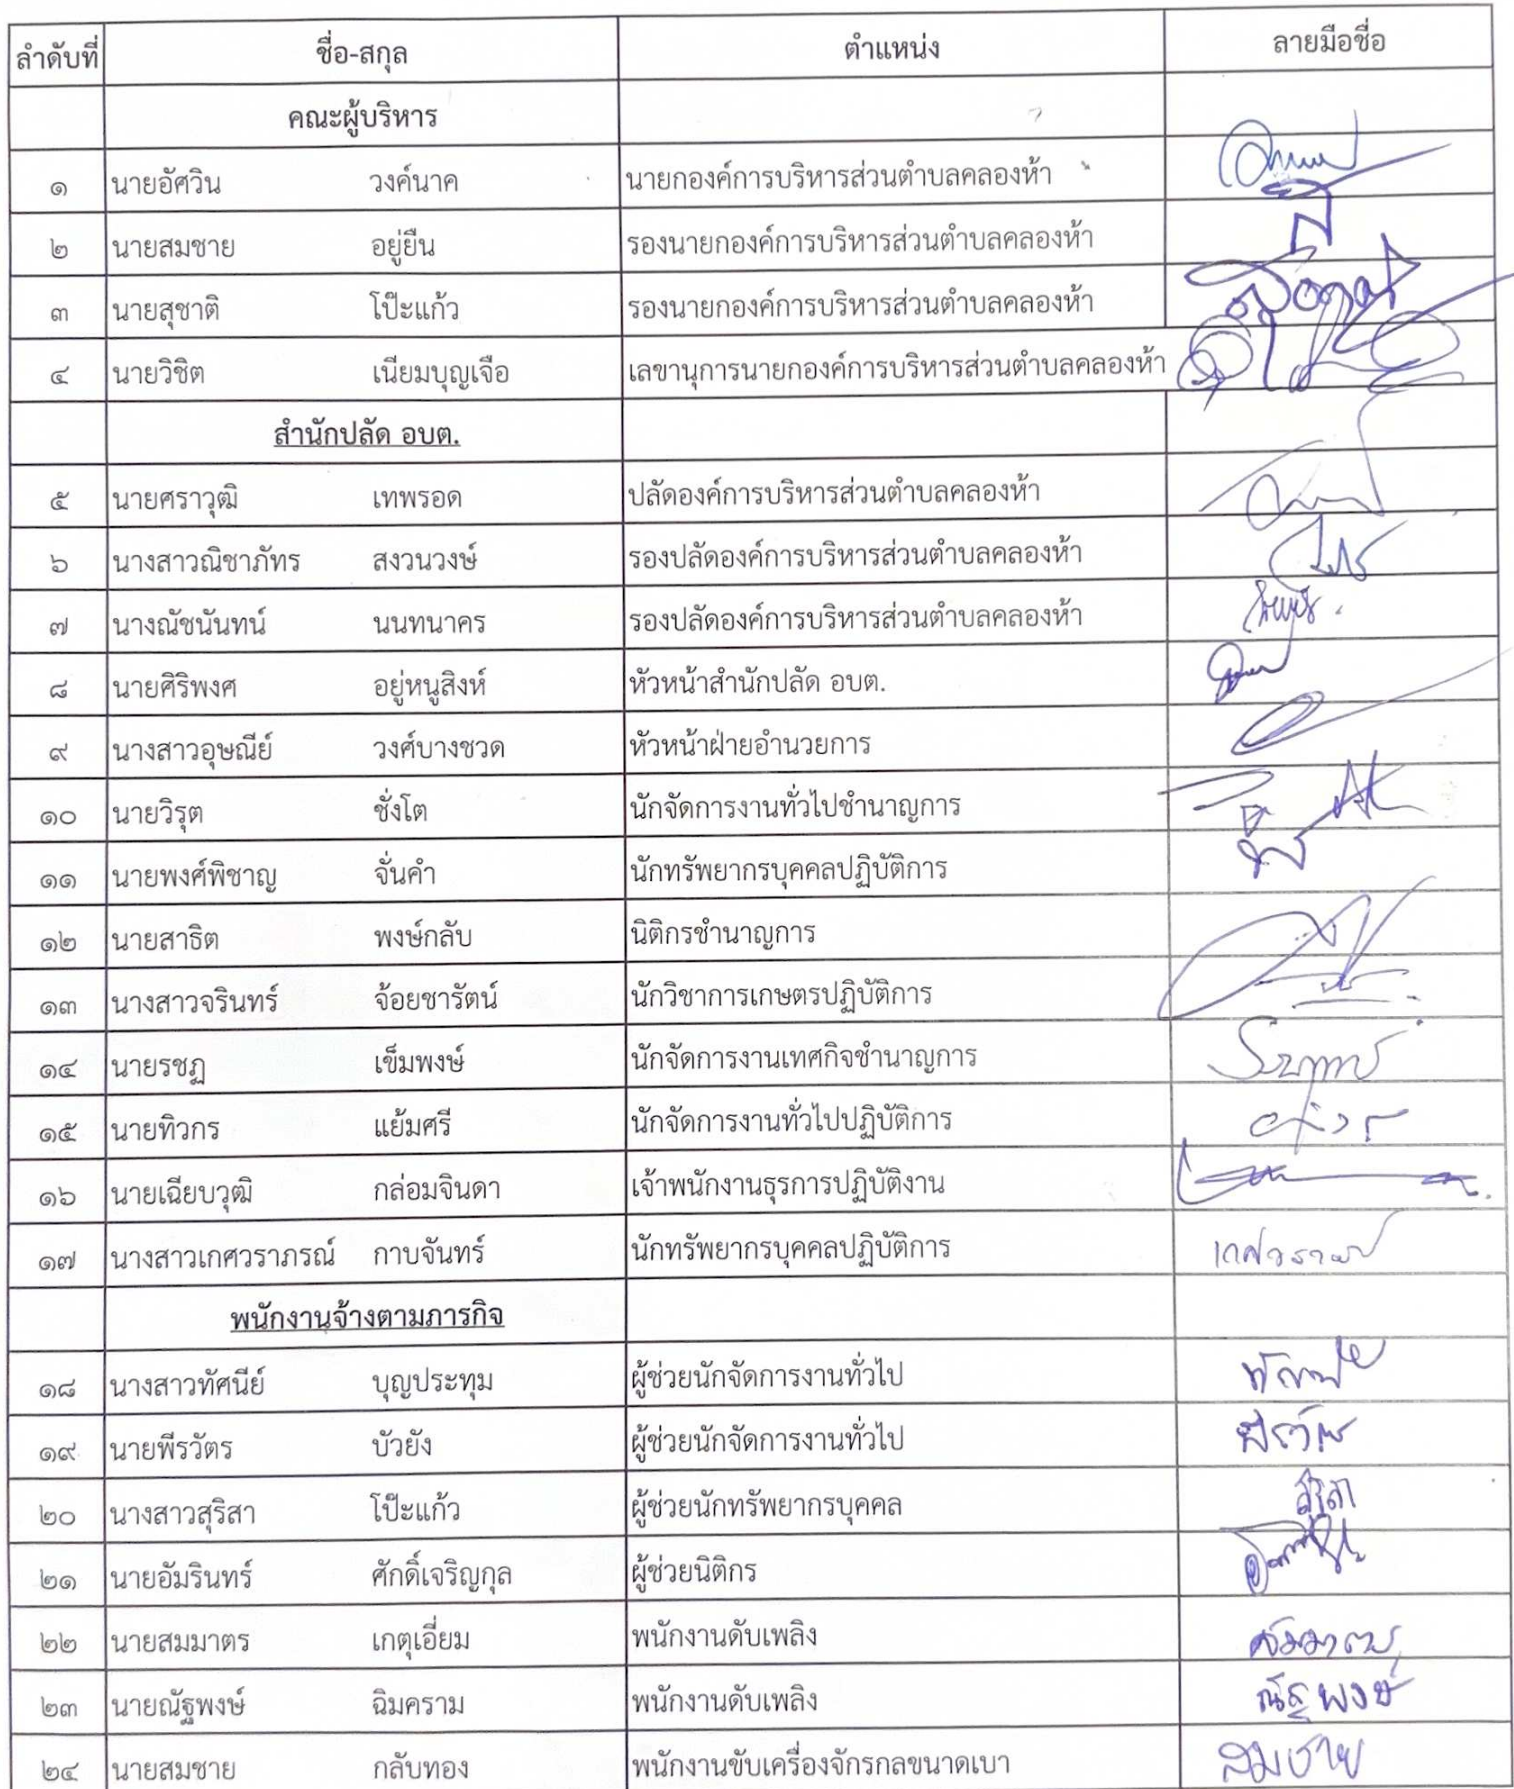 ลำดับที่ ชื่อ-สกุล ตำแหน่ง ลายมือชื่อ
คณะผู้บริหาร
๑ นายอัศวิน วงค์นาค นายกองค์การบริหารส่วนตำบลคลองห้า
๒ นายสมชาย อยู่ยืน รองนายกองค์การบริหารส่วนตำบลคลองห้า
๓ นายสุชาติ โป๊ะแก้ว รองนายกองค์การบริหารส่วนตำบลคลองห้า
๔ นายวิชิต เนียมบุญเจือ เลขานุการนายกองค์การบริหารส่วนตำบลคลองห้า
สำนักปลัด อบต.
๕ นายศราวุฒิ เทพรอด ปลัดองค์การบริหารส่วนตำบลคลองห้า
๖ นางสาวณิชาภัทร สงวนวงษ์ รองปลัดองค์การบริหารส่วนตำบลคลองห้า
๗ นางณัชนันทน์ นนทนาคร รองปลัดองค์การบริหารส่วนตำบลคลองห้า
๘ นายศิริพงศ อยู่หนูสิงห์ หัวหน้าสำนักปลัด อบต.
๙ นางสาวอุษณีย์ วงศ์บางชวด หัวหน้าฝ่ายอำนวยการ
๑๐ นายวิรุต ชั่งโต นักจัดการงานทั่วไปชำนาญการ
๑๑ นายพงศ์พิชาญ จั่นคำ นักทรัพยากรบุคคลปฏิบัติการ
๑๒ นายสาธิต พงษ์กลับ นิติกรชำนาญการ
๑๓ นางสาวจรินทร์ จ้อยชารัตน์ นักวิชาการเกษตรปฏิบัติการ
๑๔ นายรชฏ เข็มพงษ์ นักจัดการงานเทศกิจชำนาญการ
๑๕ นายทิวกร แย้มศรี นักจัดการงานทั่วไปปฏิบัติการ
๑๖ นายเฉียบวุฒิ กล่อมจินดา เจ้าพนักงานธุรการปฏิบัติงาน
๑๗ นางสาวเกศวราภรณ์ กาบจันทร์ นักทรัพยากรบุคคลปฏิบัติการ เกศวราภรณ์
พนักงานจ้างตามภารกิจ
๑๘ นางสาวทัศนีย์ บุญประทุม ผู้ช่วยนักจัดการงานทั่วไป
๑๙ นายพีรวัตร บัวยัง ผู้ช่วยนักจัดการงานทั่วไป พีรวัตร
๒๐ นางสาวสุริสา โป๊ะแก้ว ผู้ช่วยนักทรัพยากรบุคคล สุริสา
๒๑ นายอัมรินทร์ ศักดิ์เจริญกุล ผู้ช่วยนิติกร
๒๒ นายสมมาตร เกตุเอี่ยม พนักงานดับเพลิง สมมาตร
๒๓ นายณัฐพงษ์ ฉิมคราม พนักงานดับเพลิง ณัฐพงษ์
๒๔ นายสมชาย กลับทอง พนักงานขับเครื่องจักรกลขนาดเบา สมชาย